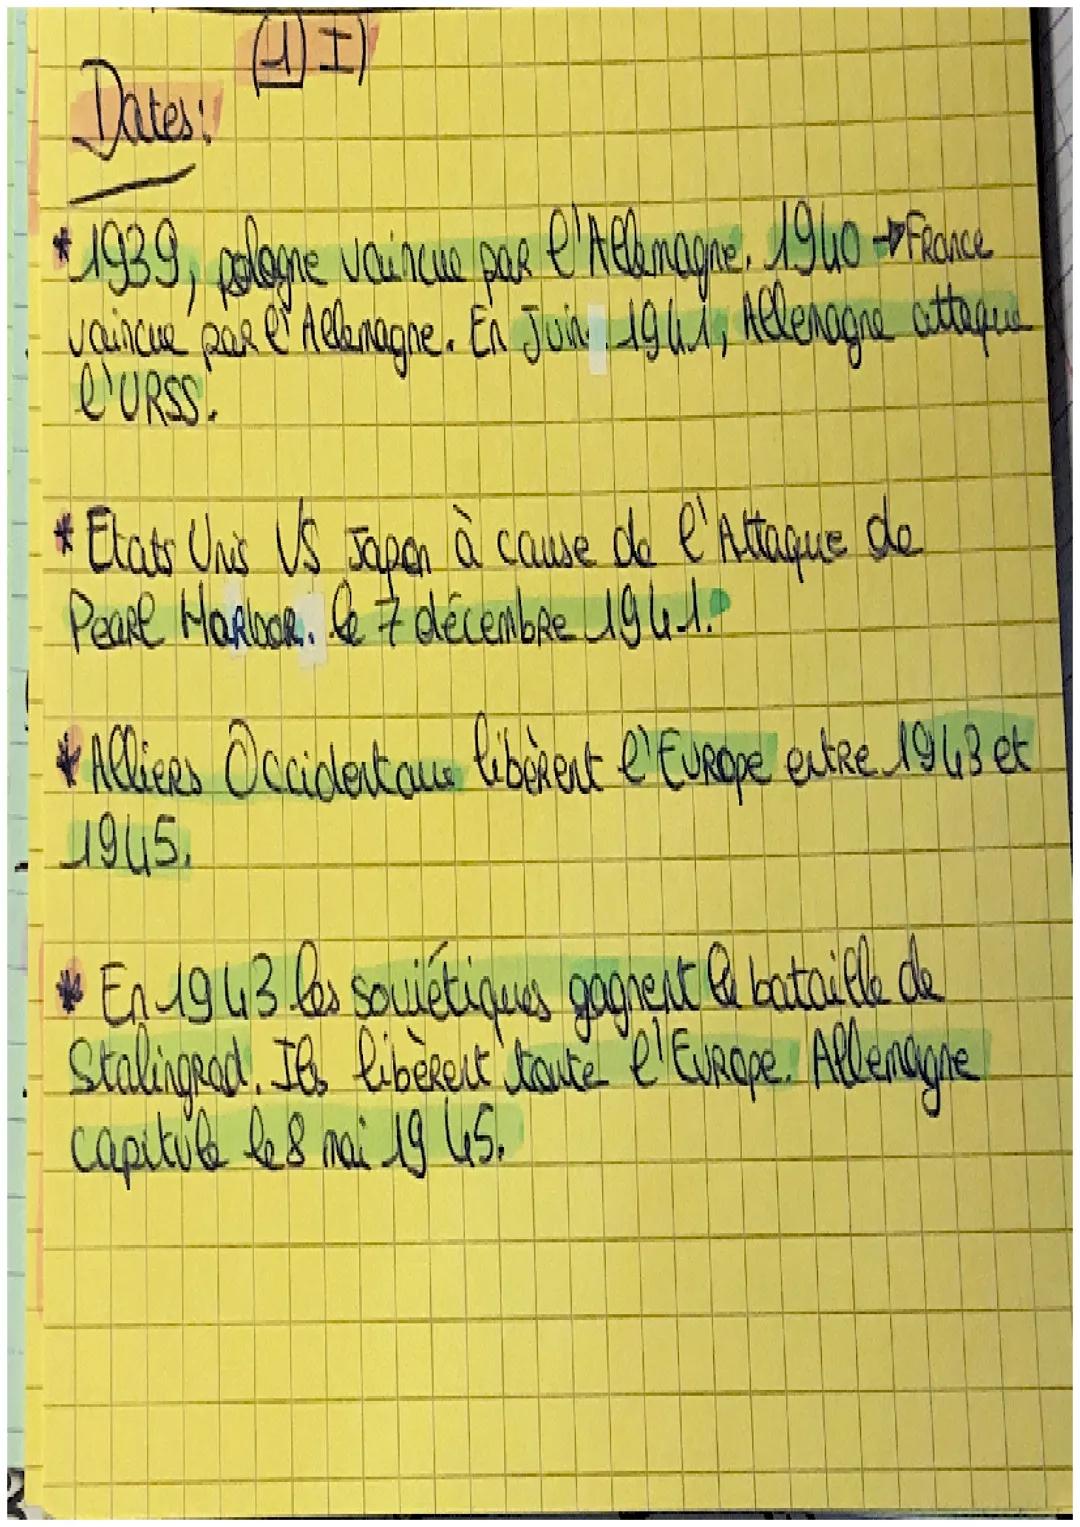 (1) I)
Dates:
* 1939, pologne vaincue par l'Allemagne. 1940 → France
vaincue par l'Allemagne. En Juin 1941, Allemagne attaque
l'URSS.
* Etats Unis VS Japon à cause de l'Attaque de
Pearl Harbor. le 7 décembre 1941.
* Alliers Occidentaux libèrent l'Europe entre 1943 et
1945.
* En 1943 les soviétiques gagnent la bataille de
Stalingrad. Ils libèrent toute l'Europe. Allemagne
capitule le 8 mai 1945.